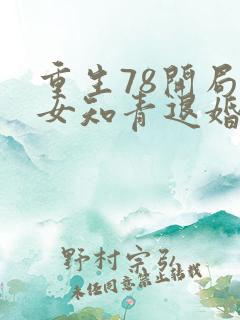 重生78开局
女知青退婚
野村宗弘
未经同意禁止转载